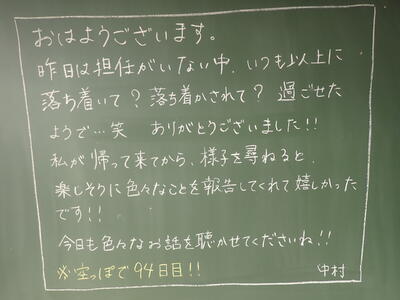 おはようございます。
昨日は担任がいない中、いつも以上に
落ち着いて？落ち着かされて？過ごせた
ようで…笑 ありがとうございました!!
私が帰って来てから、様子を尋ねると、
楽しそうに色々なことを報告してくれて嬉しかった
です!!
今日も色々なお話を聴かせてくださいね!!
※空っぽで94日目!! 中村